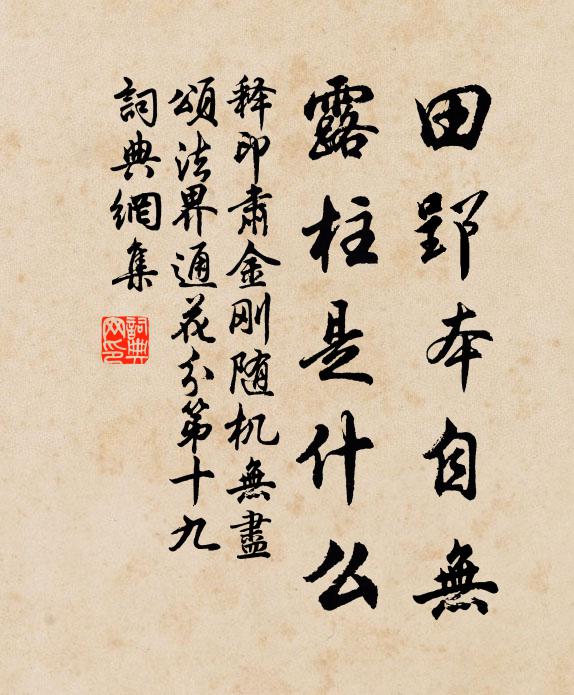 田郢本自無
露柱是什么
释印肃金刚随机無盡
頌法界通花分第十九
詞典網集
詞典
网印